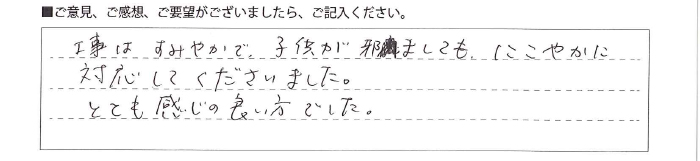 ■ご意見、ご感想、ご要望がございましたら、ご記入ください。
工事は すみやかで、子供が邪ましても、にこやかに
対応してくださいました。
とても感じの良い方でした。